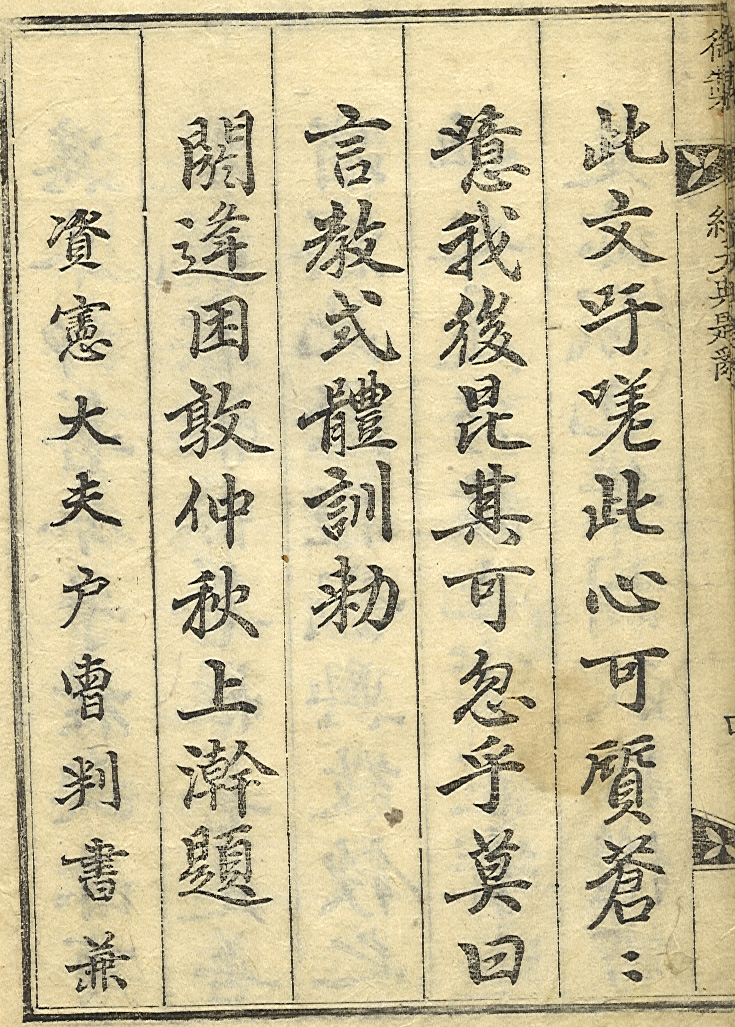 此文吁嗟此心可質蒼〻
噫我後昆其可忽乎莫曰
言教式體訓勑
閼逢困敦仲秋上澣題
資憲大夫户曹判書兼